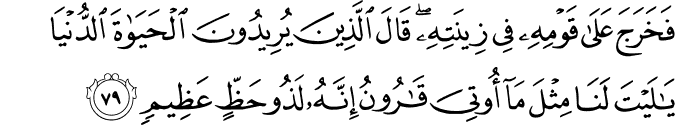 فَخَرَجَ عَلَىٰ قَوْمِهِۦ فِى زِينَتِهِۦ ۖ قَالَ ٱلَّذِينَ يُرِيدُونَ ٱلْحَيَوٰةَ ٱلدُّنْيَا
يَٰلَيْتَ لَنَا مِثْلَ مَآ أُوتِىَ قَٰرُونُ إِنَّهُۥ لَذُو حَظٍّ عَظِيمٍ ٧٩